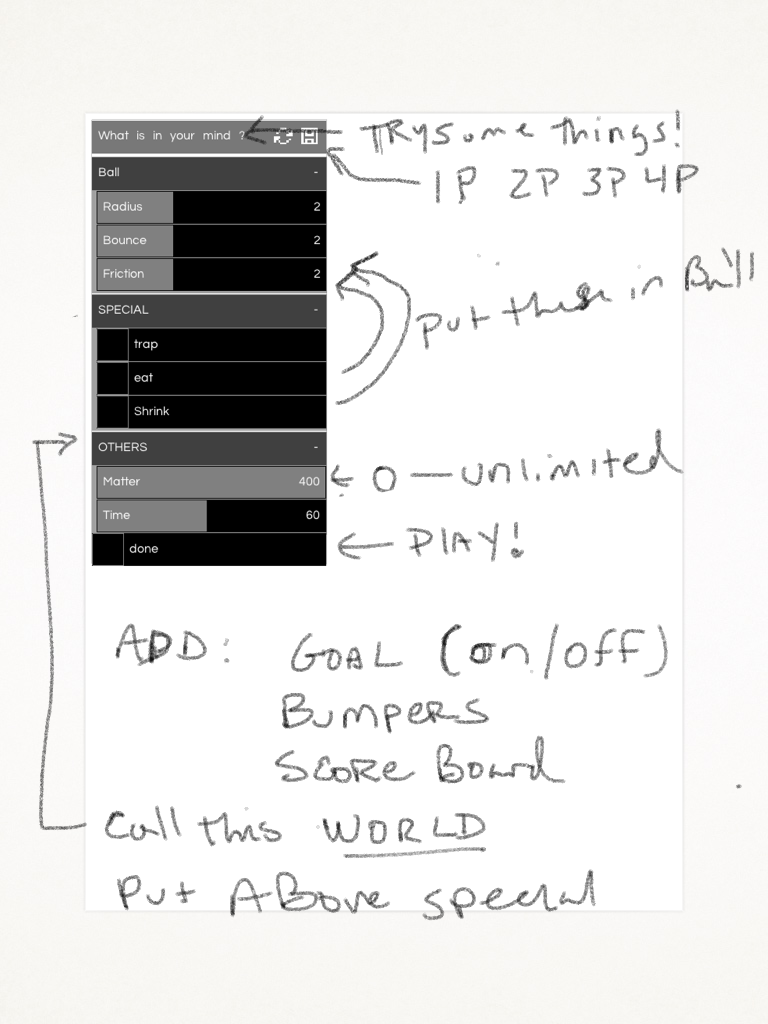 What is in your mind ?
TRY some things!
1P 2P 3P 4P
Ball -
Radius 2
Bounce 2
Friction 2
Put these in Ball
SPECIAL -
trap
eat
Shrink
OTHERS -
Matter 400
0 — unlimited
Time 60
done
PLAY!
ADD: GOAL (on/off)
BUMPERS
SCORE Board
Call this WORLD
Put Above special